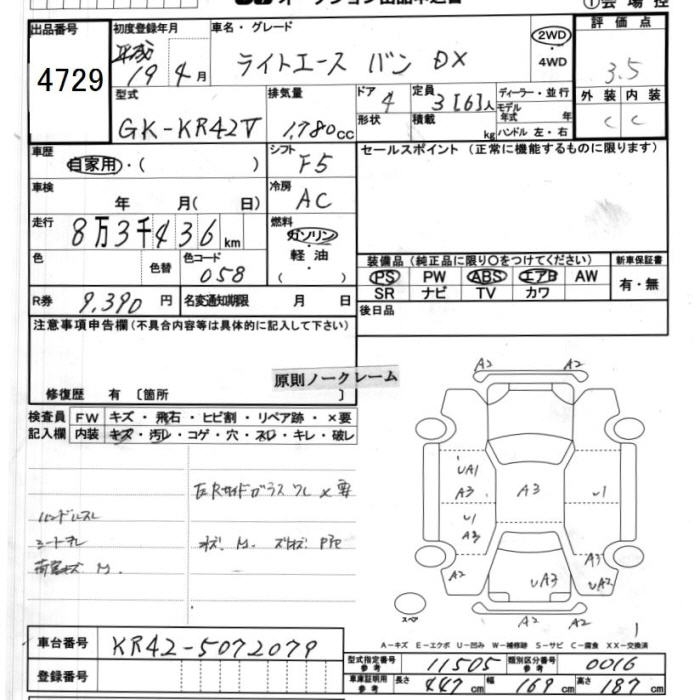 出品番号
4729
初度登録年月
平成 19年 4月
車名・グレード
ライトエース バン DX
2WD
・
4WD
①会場控
評価点
3.5
外装 内装
C C
型式
GK-KR42V
排気量
1,780cc
ドア
4
形状
定員
3[6]人
積載 kg
ディーラー・並行
モデル年式 年
ハンドル 左・右
車歴
自家用・( )
シフト
F5
セールスポイント (正常に機能するものに限ります)
車検
年 月( 日)
冷房
AC
走行
8万3千436km
燃料
ガソリン
・
軽・油
( )
色
色替
色コード
058
装備品(純正品に限り○をつけてください)
PS PW ABS エアB AW
SR ナビ TV カワ
新車保証書
有・無
R券 9,390円
名変通知期限 月 日
後日品
注意事項申告欄(不具合内容等は具体的に記入して下さい)
原則ノークレーム
修復歴 有〔箇所 〕
検査員記入欄
FW キズ・飛石・ヒビ割・リペア跡・×要
内装 キズ・汚レ・コゲ・穴・スレ・キレ・破レ
ハンドルスレ
シートヨレ
荷室キズ M.
A2 A2
UA1
A3
U1
A3
A3
U1
A3
UA2
A2
UA3
A2 A2
スペア
1
A-キズ E-エクボ U-凹み W-補修跡 S-サビ C-腐食 XX-交換済
車台番号
KR42-5072079
登録番号
型式指定番号 参考
11505
類別区分番号 参考
0016
車庫証明用 参考
長さ 447cm
幅 169cm
高さ 187cm